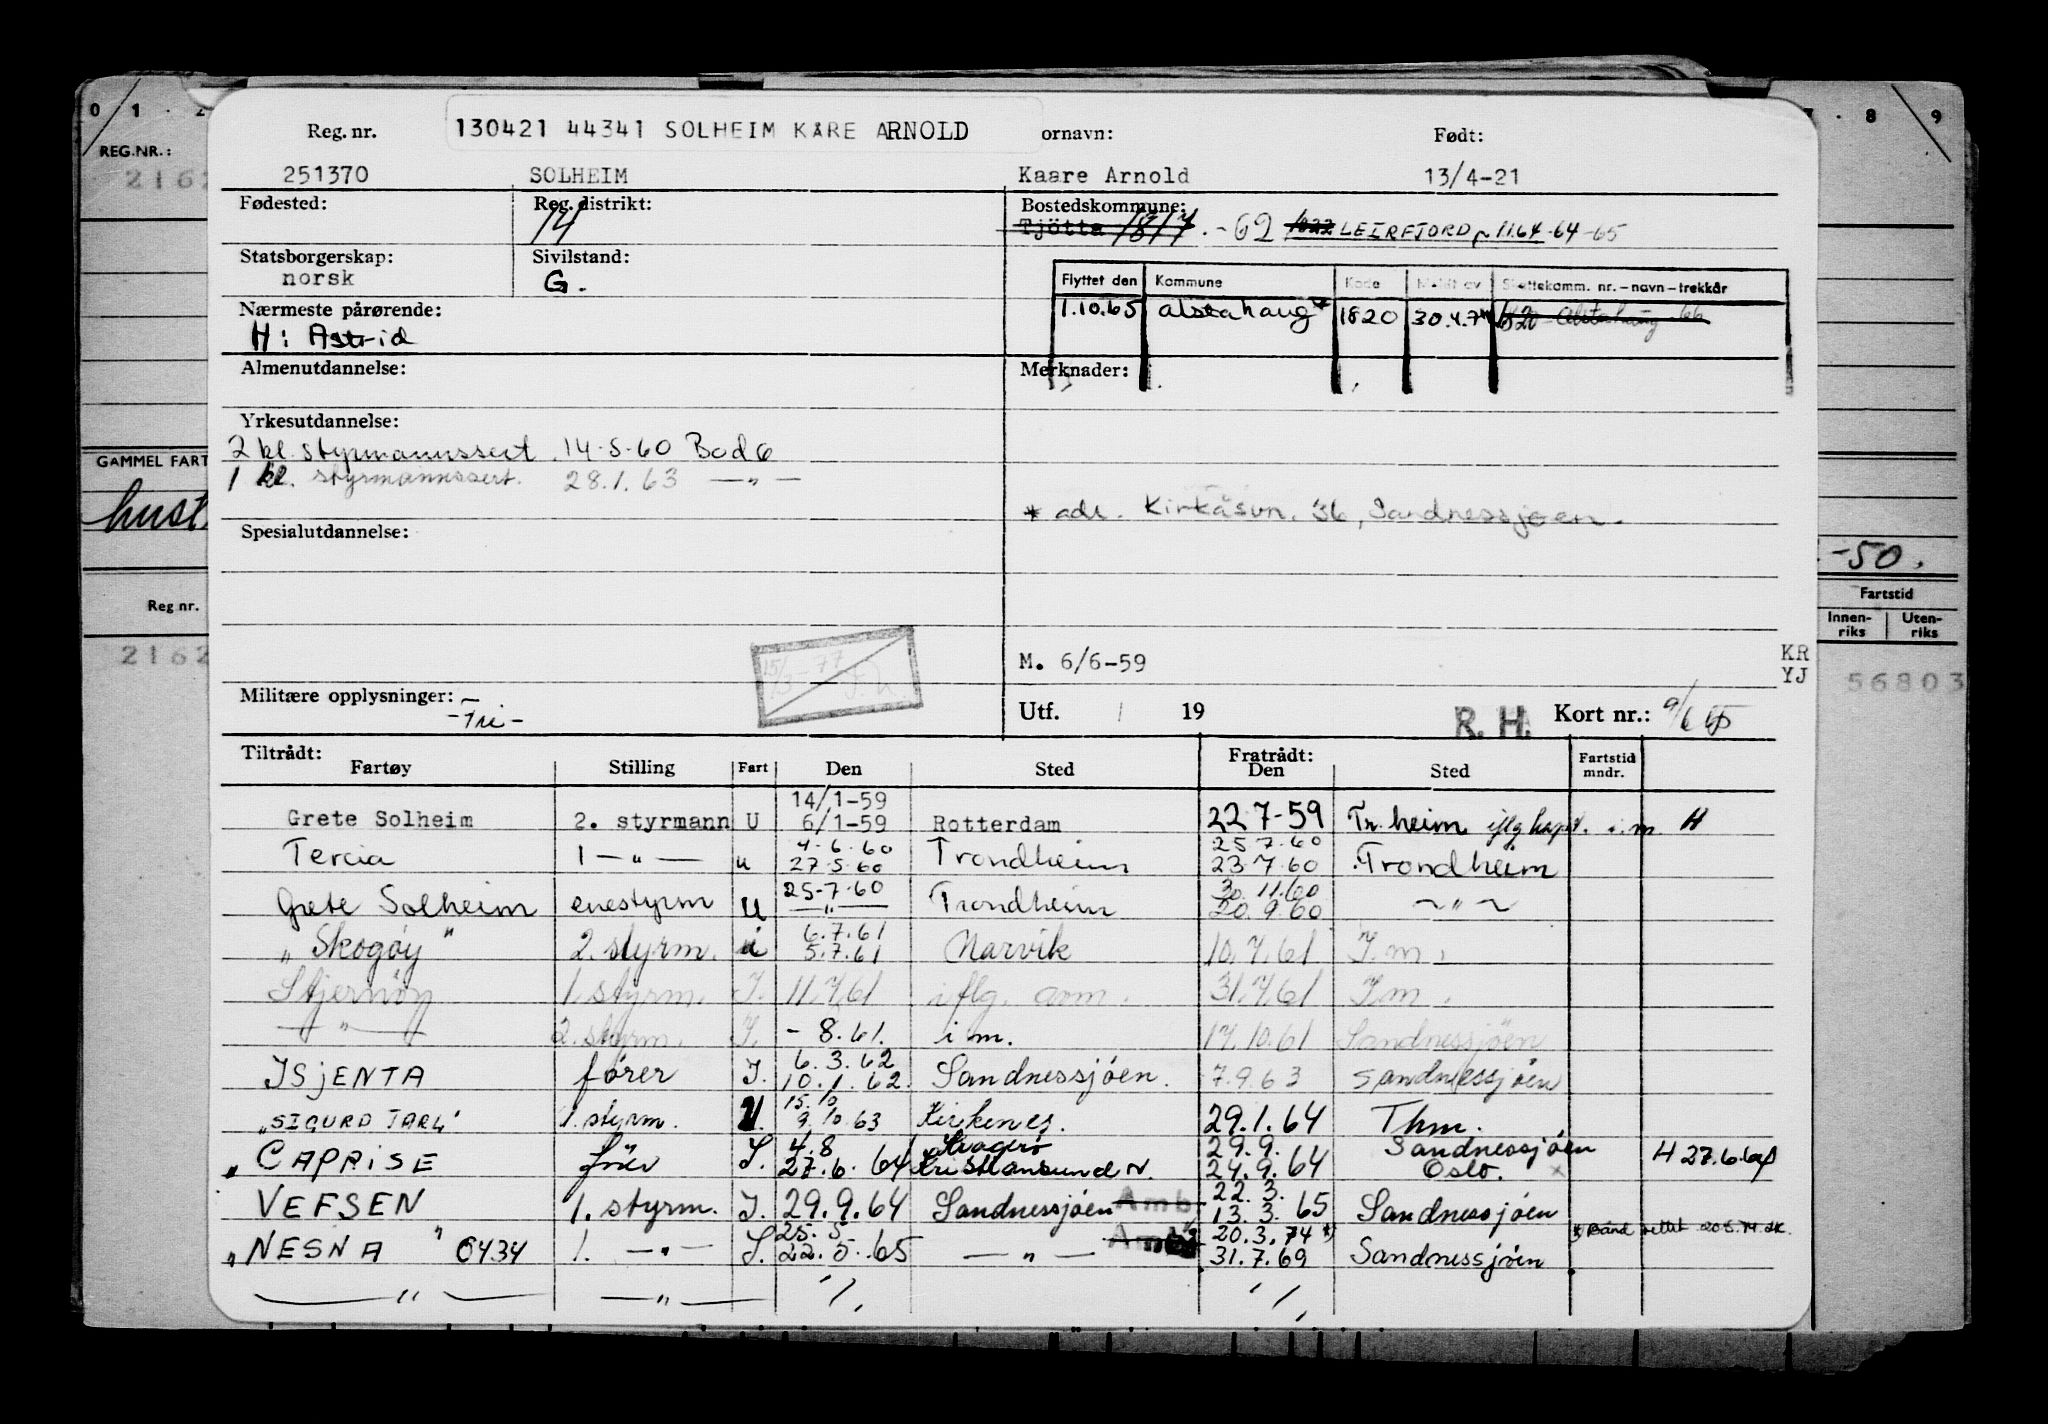 0 1 2
8 9
REG.NR.:
2162
GAMMEL FART
hust.
Reg nr.
2162
-50.
Fartstid
Innen-riks Uten-riks
56803
Reg. nr. 130421 44341 SOLHEIM KÅRE ARNOLD ornavn: Født:
251370 SOLHEIM Kaare Arnold 13/4-21
Fødested: Reg. distrikt: Bostedskommune:
14 Tjötta 1817 .-62 1822 LEIRFJORD 11.64-64-65
Statsborgerskap: Sivilstand:
norsk G.
Flyttet den Kommune Kode Meldt av Skattekomm. nr.-navn-trekkår
1.10.65 alstahaug* 1820 30.4.74 1820 Alstahaug 66
Nærmeste pårørende:
H: Astrid
Almenutdannelse: Merknader:
Yrkesutdannelse:
2 kl. styrmannssert. 14-5-60 Bodø
1 kl. styrmannssert. 28.1.63 — " —
* adr. Kirkåsvn. 36, Sandnessjøen.
Spesialutdannelse:
15/3-77
M. 6/6-59 KR
YJ
Militære opplysninger:
Utf. / 19 R. H. Kort nr.:
Tiltrådt: Fratrådt: Fartstid
Fartøy Stilling Fart Den Sted Den Sted mndr.
14/1-59
Grete Solheim 2. styrmann U 6/1-59 Rotterdam 22.7-59 Tr.heim iflg kapt. i.m. H
4.6.60 25.7.60
Tercia 1 — " — u 27.5.60 Trondheim 23.7.60 Trondheim
25-7-60 30.11.60
Grete Solheim enestyrm U — " — Trondheim 20.9.60 — " —
6.7.61
"Skogøy" 2. styrm. i 5.7.61 Narvik 10.7.61 I.m.
Stjernøy 1. styrm. I. 11.7.61 iflg. anm. 31.7.61 I.m.
— " — 2. styrm. I. - 8.61. i m. 17.10.61 Sandnessjøen
6.3.62
ISJENTA fører I. 10.1.62. Sandnessjøen. 7.9.63 Sandnessjøen
15.10
"SIGURD JARL" 1. styrm. U. 9.10.63 Kirkenes. 29.1.64 Thm.
4.8 29.9. Sandnessjøen
"CAPRISE fører I. 27.6.64 Kristiansund N. 24.9.64 Oslo. x H 27.6.64
22.3.
VEFSEN 1. styrm. I. 29.9.64 Sandnessjøen Amb. 13.3.65 Sandnessjøen
25.5 20.3.74 *)
"NESNA" 0434 1. — " — I. 22.5.65 — " — Amb 31.7.69 Sandnessjøen
— " — — " — / /